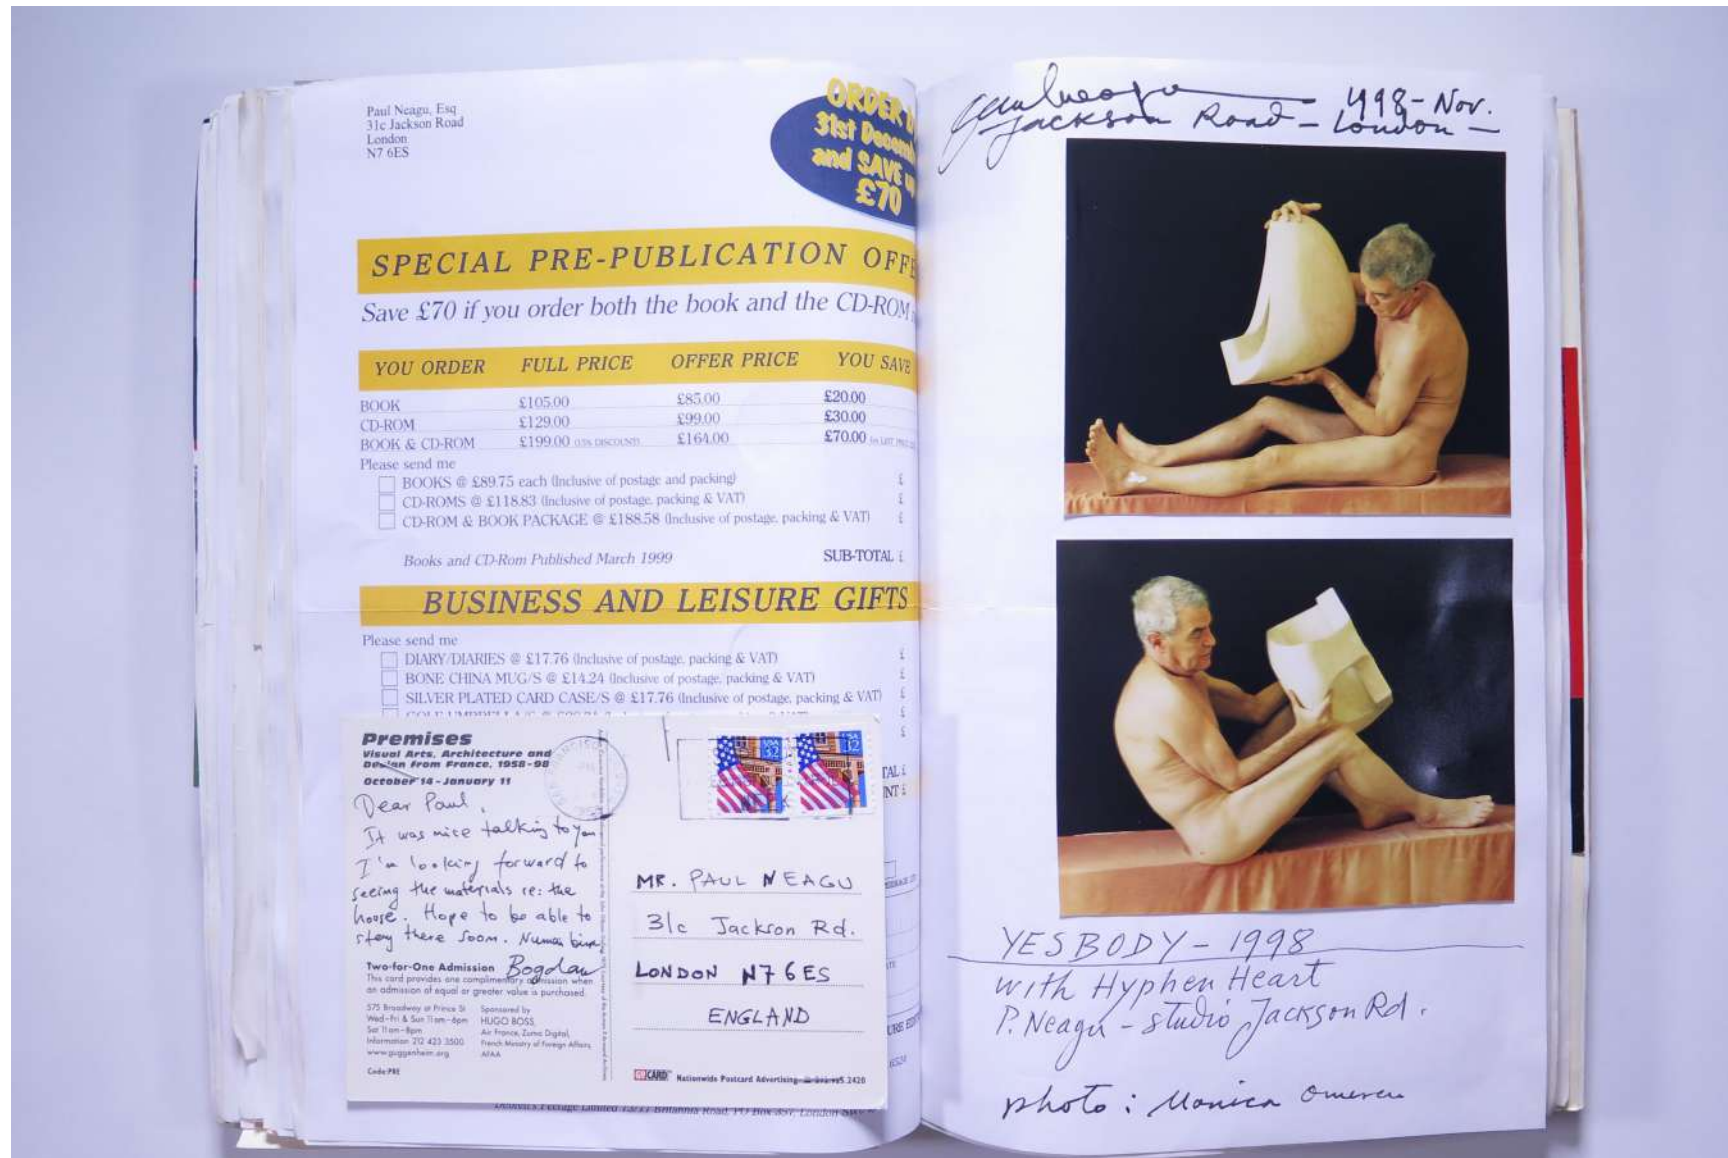 Paul Neagu, Esq
31c Jackson Road
London
N7 6ES
ORDER
31st Decem
and SAVE
£70
SPECIAL PRE-PUBLICATION OFFE
Save £70 if you order both the book and the CD-ROM
YOU ORDER FULL PRICE OFFER PRICE YOU SAVE
BOOK £105.00 £85.00 £20.00
CD-ROM £129.00 £99.00 £30.00
BOOK & CD-ROM £199.00 (15% DISCOUNT) £164.00 £70.00
Please send me
BOOKS @ £89.75 each (Inclusive of postage and packing) £
CD-ROMS @ £118.83 (Inclusive of postage, packing & VAT) £
CD-ROM & BOOK PACKAGE @ £188.58 (Inclusive of postage, packing & VAT) £
Books and CD-Rom Published March 1999 SUB-TOTAL £
BUSINESS AND LEISURE GIFTS
Please send me
DIARY/DIARIES @ £17.76 (Inclusive of postage, packing & VAT) £
BONE CHINA MUG/S @ £14.24 (Inclusive of postage, packing & VAT) £
SILVER PLATED CARD CASE/S @ £17.76 (Inclusive of postage, packing & VAT) £
£
£
TAL £
NT £
Premises
Visual Arts, Architecture and
Design from France, 1958-98
October 14 - January 11
Dear Paul,
It was nice talking to you
I'm looking forward to
seeing the materials re: the
house. Hope to be able to
stay there soon. Numai bine
Bogdan
Two-for-One Admission
This card provides one complimentary admission when
an admission of equal or greater value is purchased.
575 Broadway at Prince St
Wed-Fri & Sun 11am-6pm
Sat 11am-8pm
Information 212 423 3500
www.guggenheim.org
Sponsored by
HUGO BOSS,
Air France, Zuma Digital,
French Ministry of Foreign Affairs,
AFAA
Code:PRE
USA 32
USA 32
MR. PAUL NEAGU
31c Jackson Rd.
LONDON N7 6ES
ENGLAND
GOCARD Nationwide Postcard Advertising
Britannia Road, PO Box 357, London
1998-Nov.
Jackson Road - London -
YESBODY - 1998
with Hyphen Heart
P. Neagu - studio Jackson Rd.
photo: Monica